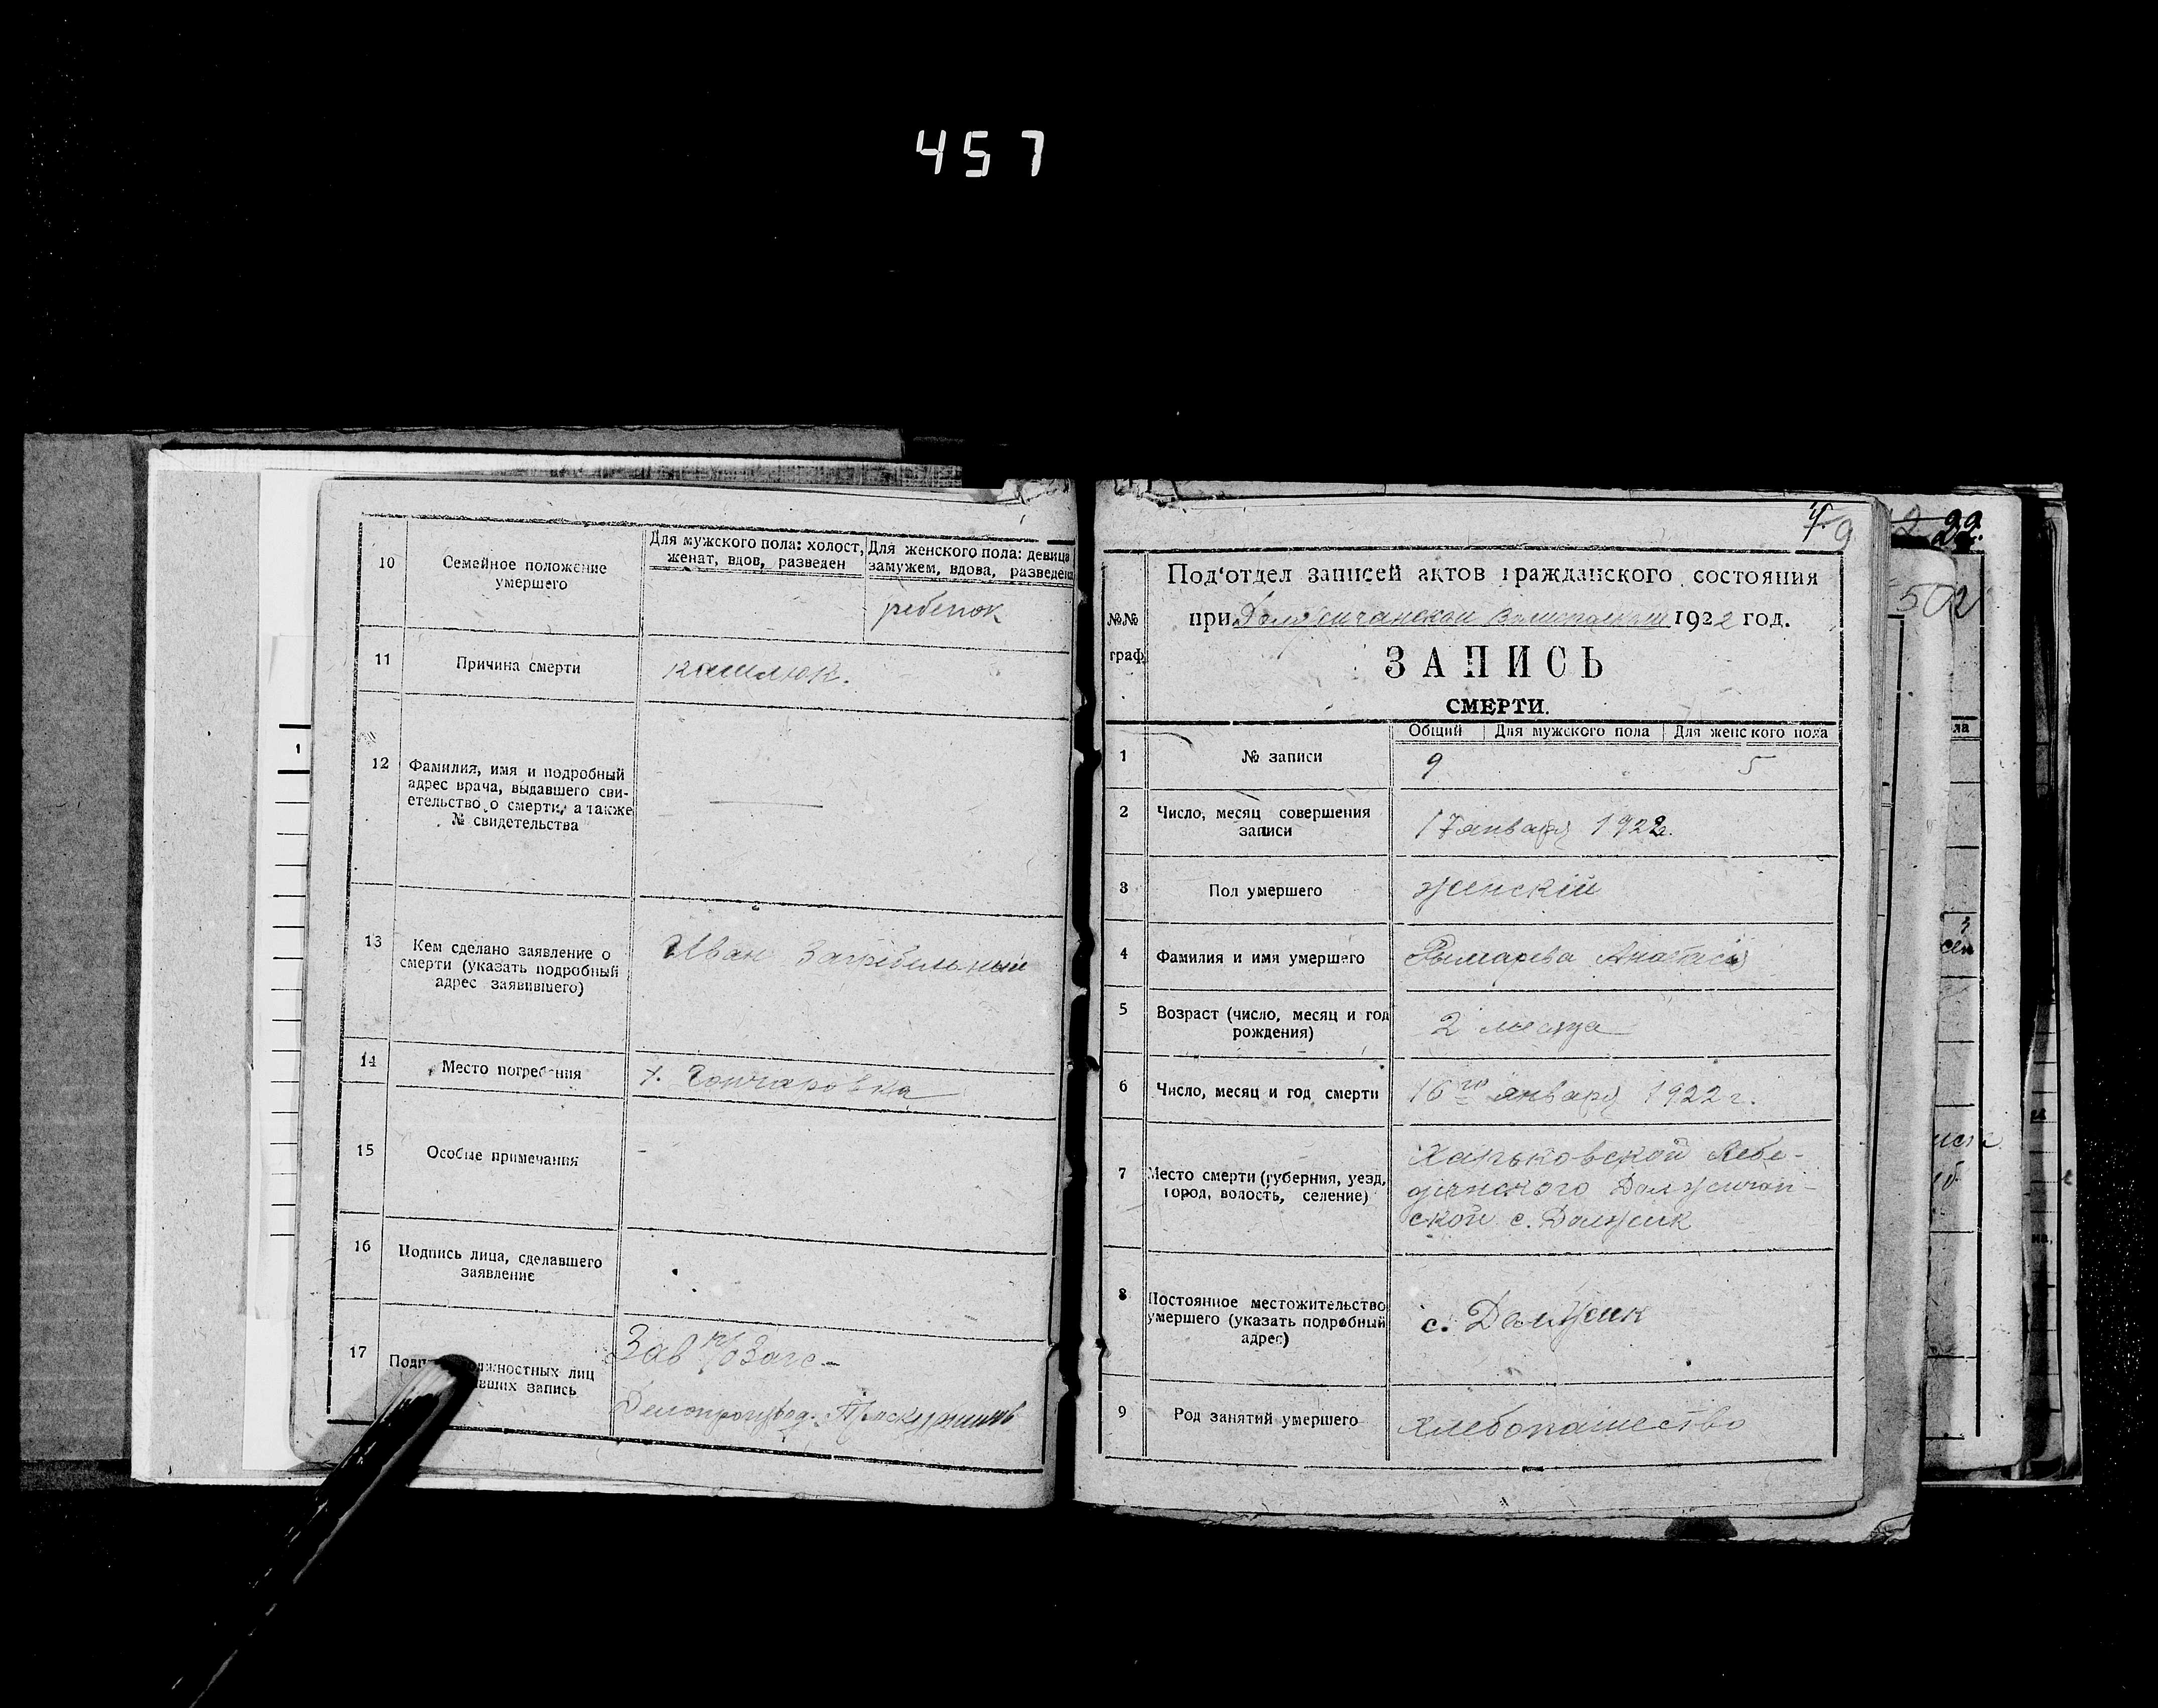 457
10
Семейное положение
умершего
Для мужского пола: холост,
женат, вдов, разведен
Для женского пола: девица
замужем, вдова, разведена
ребенок
11
Причина смерти
кашлюк.
12
Фамилия, имя и подробный
адрес врача, выдавшего сви-
етельство о смерти, а также
№ свидетельства
13
Кем сделано заявление о
смерти (указать подробный
адрес заявившего)
Иван Загребельный
14
Место погребения
х. Гончаровка
15
Особые примечания
-
16
Подпись лица, сделавшего
заявление
17
Зав п/о Загс-
Делопроизвод.
9
Под'отдел записей актов гражданского состояния
№№
граф.
при Должичанском 1922 год.
ЗАПИСЬ
СМЕРТИ.
Общий Для мужского пола Для женского пола
1
№ записи
9 5
2
Число, месяц совершения
записи
17 января 1922г.
3
Пол умершего
женскій
4
Фамилия и имя умершего
Рымарева Анастасія
5
Возраст (число, месяц и год
рождения)
2 месяца
6
Число, месяц и год смерти
16го января 1922 г.
7
Место смерти (губерния, уезд,
город, волость, селение)
Харьковской Лебе-
динского Должичан-
ской с. Должик
8
Постоянное местожительство
умершего (указать подробный
адрес)
с. Должик
9
Род занятий умершего
Хлебопашество
22.
502